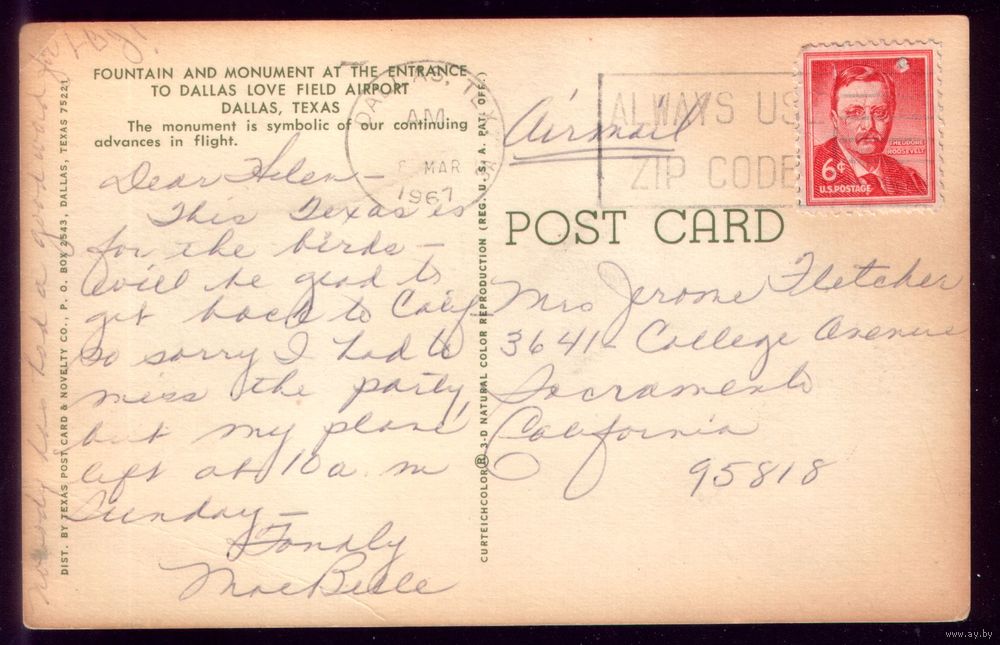 FOUNTAIN AND MONUMENT AT THE ENTRANCE
TO DALLAS LOVE FIELD AIRPORT
DALLAS, TEXAS
The monument is symbolic of our continuing
advances in flight.
Dear Helen—
This Texas is
for the birds—
will be glad to
get back to Calif
so sorry I had to
miss the party,
but my plane
left at 10 a m
Sunday—
Fondly
MaeBelle
has a good word for
LBJ!
DIST. BY TEXAS POST CARD & NOVELTY CO., P. O. BOX 2543, DALLAS, TEXAS 75221
CURTEICHCOLOR® 3-D NATURAL COLOR REPRODUCTION (REG. U. S. A. PAT. OFF.)
DALLAS, TEX
AM
MAR
1967
Airmail
ALWAYS USE
ZIP CODE
THEODORE
ROOSEVELT
6¢
U.S. POSTAGE
POST CARD
Mrs Jerome Fletcher
3641- College Avenue
Sacramento
California
95818
www.ay.by